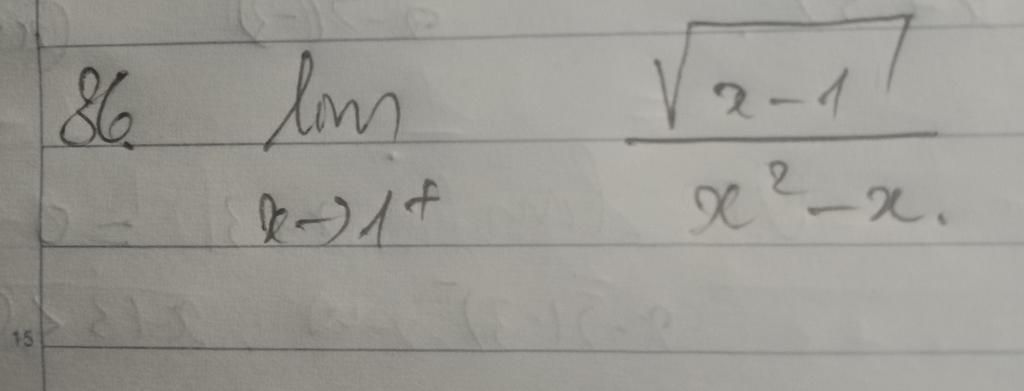 86. lim x→1⁺ √(x-1) / (x² - x).
15